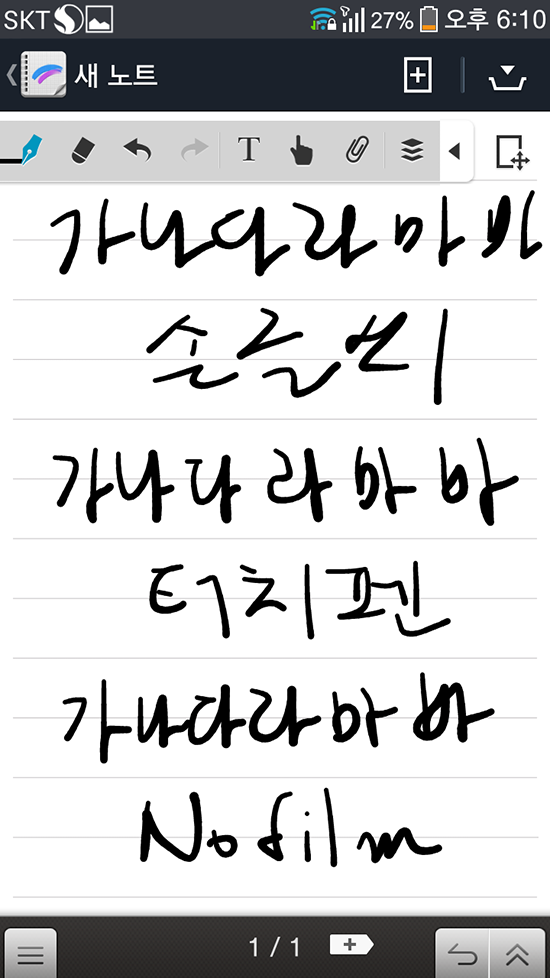 SKT 27% 오후 6:10
새 노트
T
가나다라마바
가나다라마바
터치펜
가나다라마바
No film
1 / 1